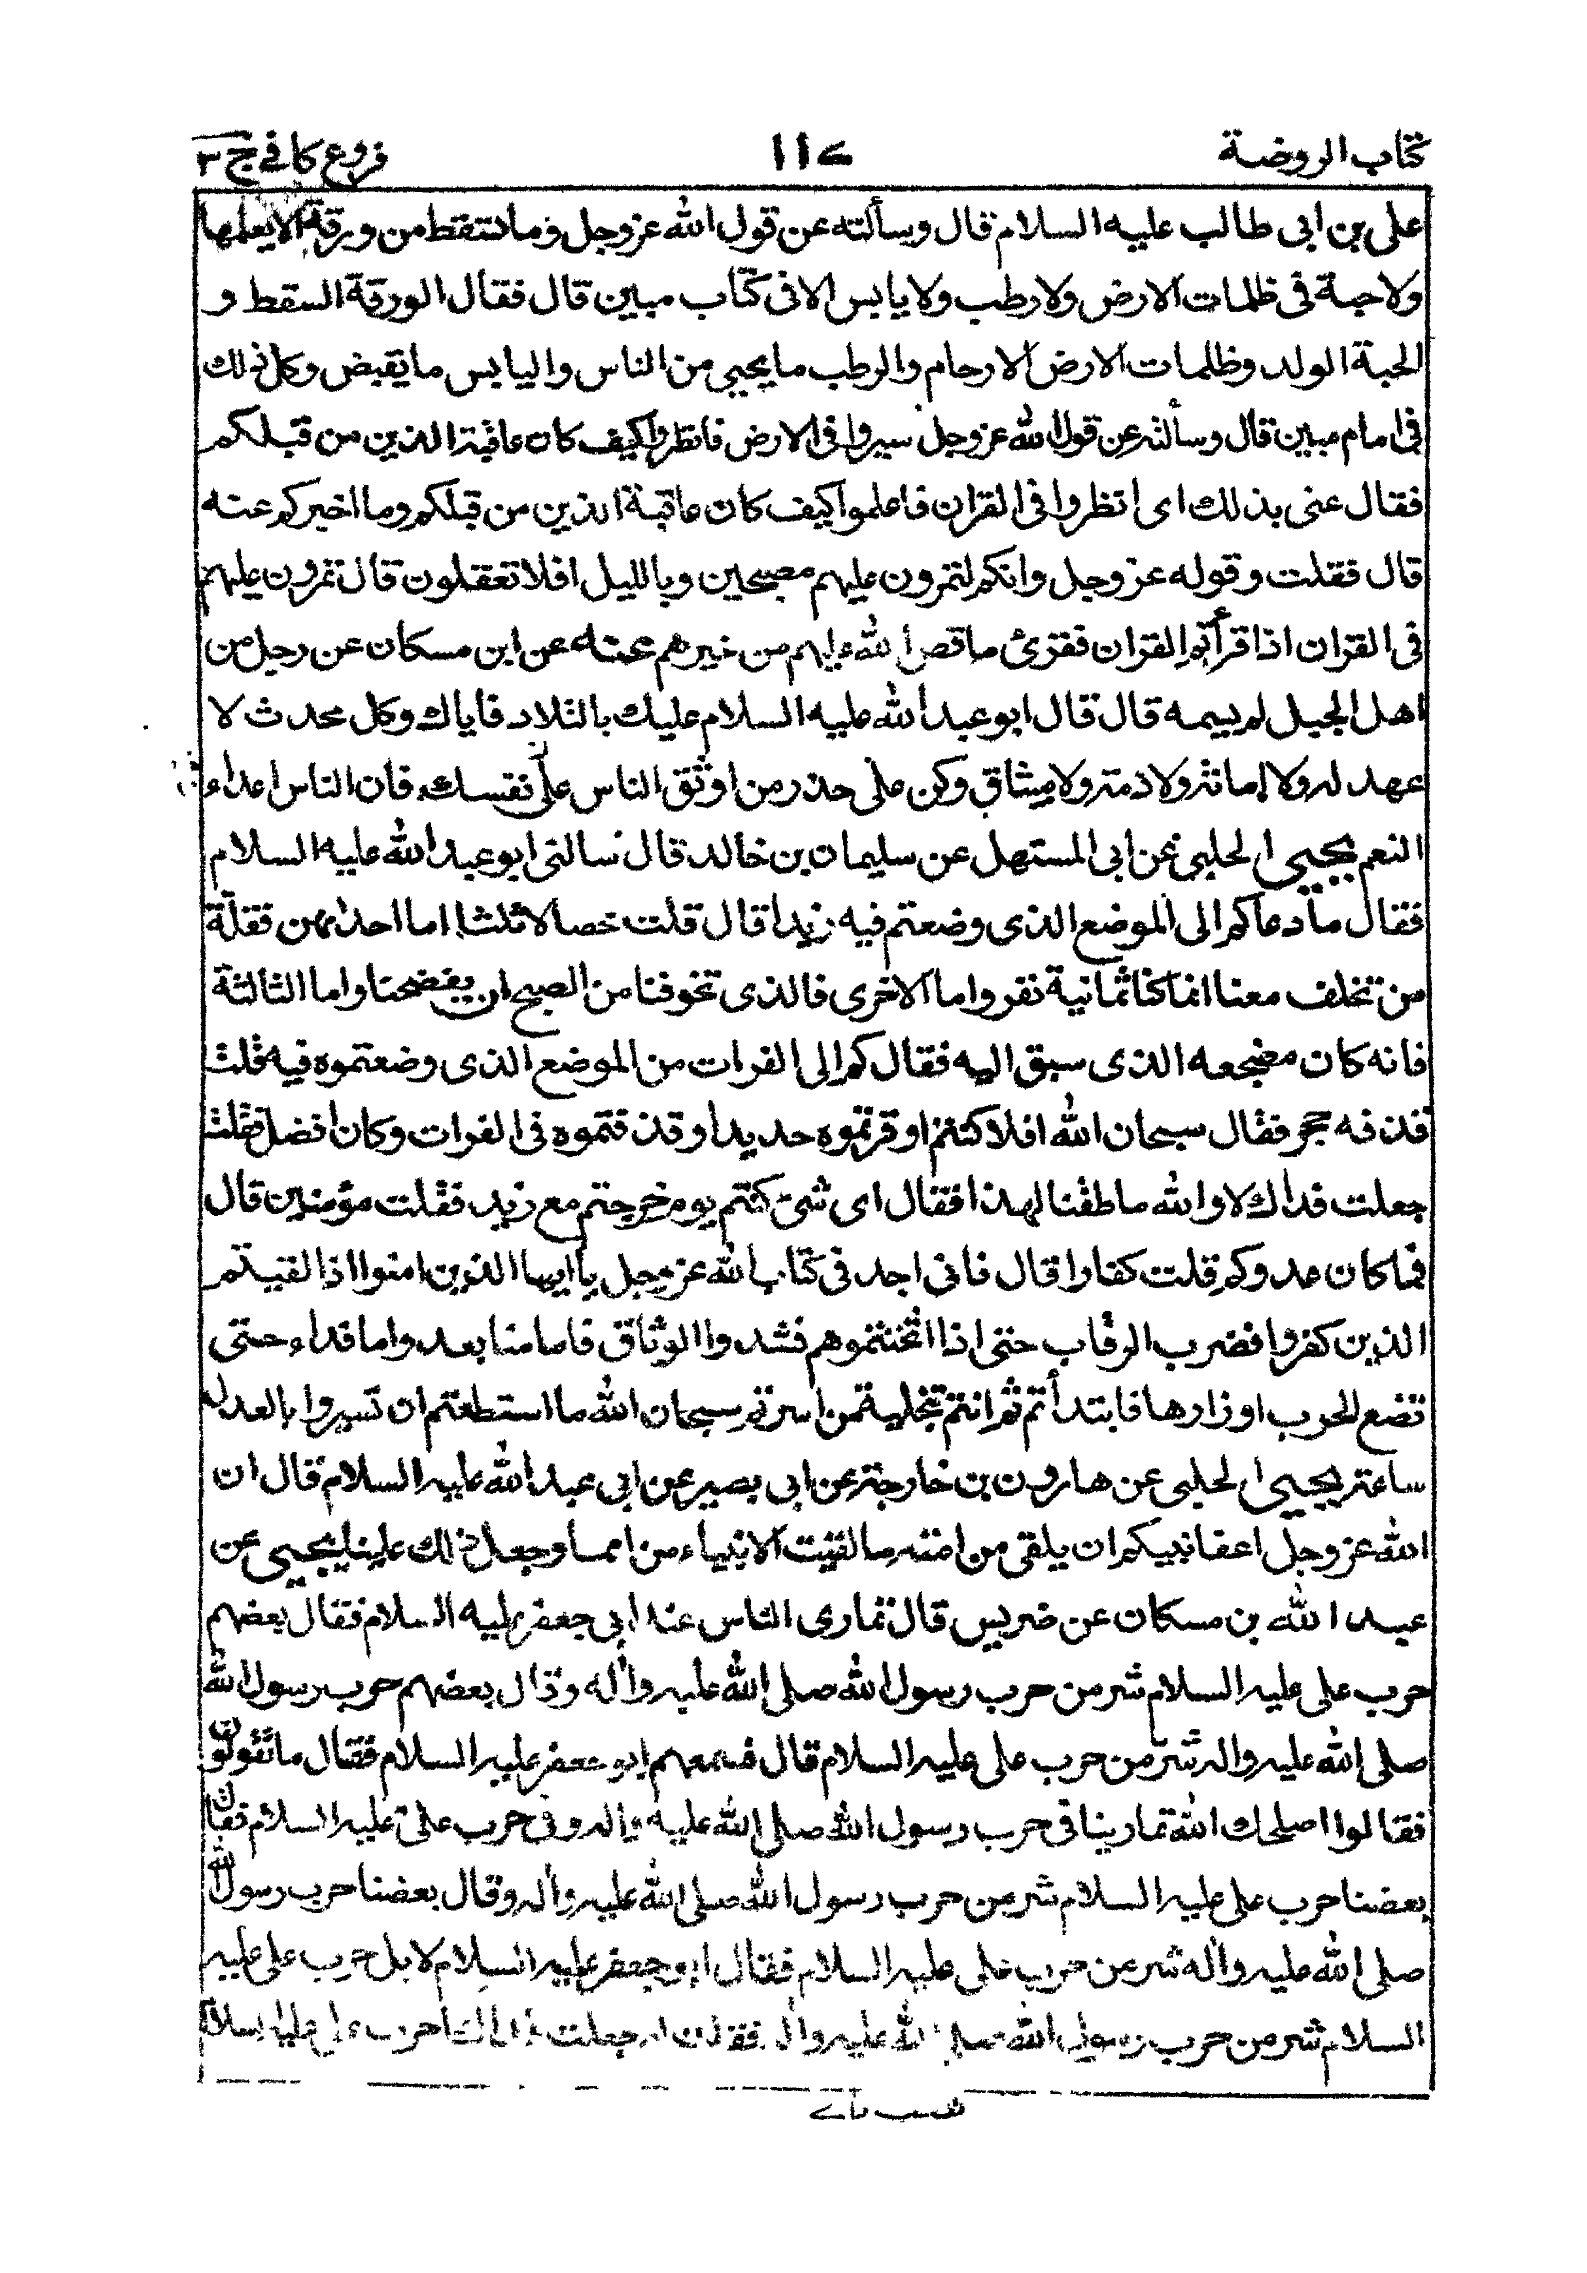 كتاب الروضة ١١٧ فروع كافي ج ٣
على بن ابى طالب عليه السلام قال وسألته عن قول الله عز وجل وما تسقط من ورقة الا يعلمها
ولا حبة فى ظلمات الارض ولا رطب ولا يابس الا فى كتاب مبين قال فقال الورقة السقط و
الحبة الولد وظلمات الارض الارحام والرطب ما يحيى من الناس واليابس ما يقبض وكل ذلك
فى امام مبين قال وسألته عن قول الله عز وجل سيروا فى الارض فانظروا كيف كان عاقبة الذين من قبلكم
فقال عنى بذلك اى انظروا فى القران فاعلموا كيف كان عاقبة الذين من قبلكم وما اخبركم عنه
قال فقلت وقوله عز وجل وانكم لتمرون عليهم مصبحين وبالليل افلا تعقلون قال تمرون عليهم
فى القران اذا قرأتم القران فقرئ ما قص الله عليهم من خبرهم عنه عن ابن مسكان عن رجل من
اهل الجبل لم يسمه قال قال ابو عبد الله عليه السلام عليك بالتلاد فاياك وكل محدث لا
عهد له ولا امانة ولا ذمة ولا ميثاق وكن على حذر من اوثق الناس على نفسك فان الناس اعداء
النعم يحيى الحلبى عن ابى المستهل عن سليمان بن خالد قال سالنى ابو عبد الله عليه السلام
فقال ما دعاكم الى الموضع الذى وضعتم فيه زيدا قال قلت خصال ثلث اما احداهن فقلة
من تخلف معنا انما كنا ثمانية نفر واما الاخرى فالذى تخوفنا من الصبح ان يفضحنا واما الثالثة
فانه كان مضجعه الذى سبق اليه فقال كم الى الفرات من الموضع الذى وضعتموه فيه قلت
قذفه حجر فقال سبحان الله افلا كنتم اوقرتموه حديدا وقذفتموه فى الفرات وكان افضل فقلت
جعلت فداك لا والله ما طقنا لهذا فقال اى شئ كنتم يوم خرجتم مع زيد فقلت مؤمنين قال
فما كان عدوكم قلت كفارا قال فانى اجد فى كتاب الله عز وجل يا ايها الذين امنوا اذا لقيتم
الذين كفروا فضرب الرقاب حتى اذا اثخنتموهم فشدوا الوثاق فاما منا بعد واما فداء حتى
تضع الحرب اوزارها فابتدأتم انتم بتخلية من اسرتم سبحان الله ما استطعتم ان تسيروا بالعدل
ساعة يحيى الحلبى عن هارون بن خارجة عن ابى بصير عن ابى عبد الله عليه السلام قال ان
الله عز وجل اعفا نبيكم ان يلقى من امته ما لقيت الانبياء من اممها وجعل ذلك علينا يحيى عن
عبد الله بن مسكان عن ضريس قال تمارى الناس عند ابى جعفر عليه السلام فقال بعضهم
حرب على عليه السلام شر من حرب رسول الله صلى الله عليه وأله وقال بعضهم حرب رسول الله
صلى الله عليه واله شر من حرب على عليه السلام قال فسمعهم ابو جعفر عليه السلام فقال ما تقولون
فقالوا اصلحك الله تمارينا فى حرب رسول الله صلى الله عليه واله وفى حرب على عليه السلام فقال
بعضنا حرب على عليه السلام شر من حرب رسول الله صلى الله عليه واله وقال بعضنا حرب رسول الله
صلى الله عليه واله شر من حرب على عليه السلام فقال ابو جعفر عليه السلام لا بل حرب على عليه
السلام شر من حرب رسول الله صلى الله عليه واله فقلت له جعلت فداك احرب على عليه السلام